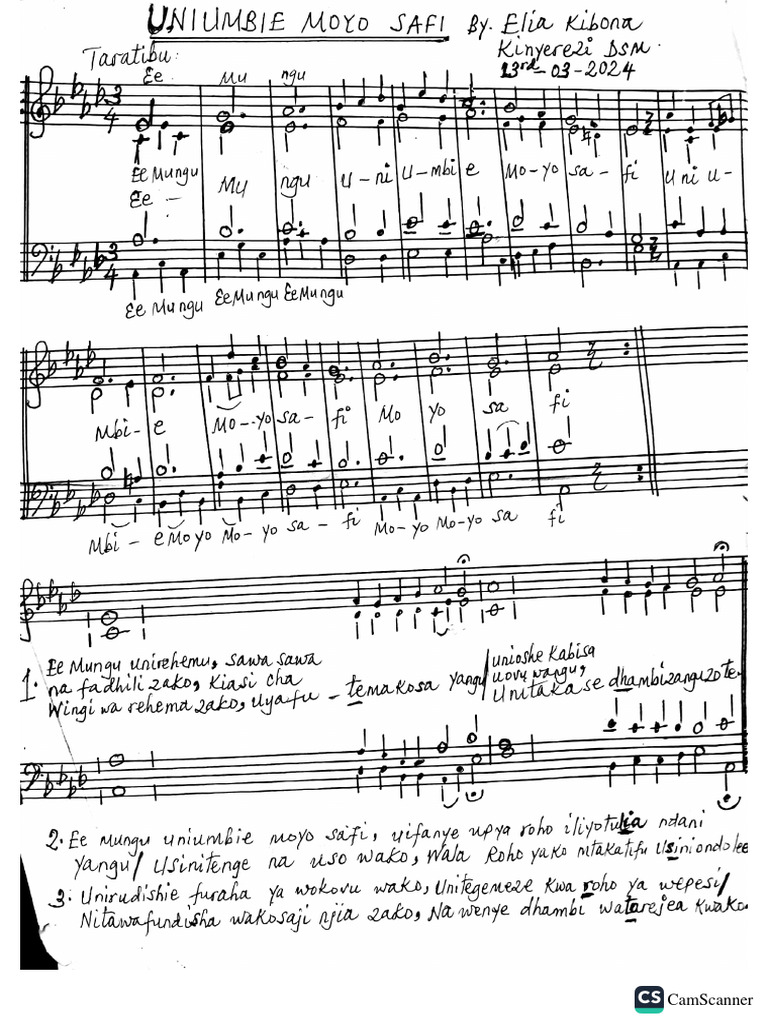 UNIUMBIE MOYO SAFI By. Elia Kibona
Kinyerezi DSM.
Taratibu: 13rd-03-2024
Ee Mu ngu
3 4
Ee Mungu Mu ngu U-ni U-mbi e Mo-yo sa-fi U ni U-
Ee -
3 4
Ee Mungu Ee Mungu Ee Mungu
Mbi- e Mo--yo sa- fi Mo yo sa fi
Mbi- e Mo yo Mo-yo sa - fi Mo-yo Mo-yo sa fi
1. Ee Mungu unirehemu, sawa sawa
na fadhili zako, kiasi cha
Wingi wa rehema zako, Uyafu - temakosa yangu/
unioshe Kabisa
uovu wangu,
Unitakase dhambi zangu zote.
2. Ee Mungu uniumbie moyo safi, uifanye upya roho iliyotulia ndani
yangu/ Usinitenge na uso wako, Wala Roho yako mtakatifu Usiniondolee
3. Unirudishie furaha ya wokovu wako, Unitegemeze kwa roho ya wepesi/
Nitawafundisha wakosaji njia zako, Na wenye dhambi watarejea kwako.
CS CamScanner